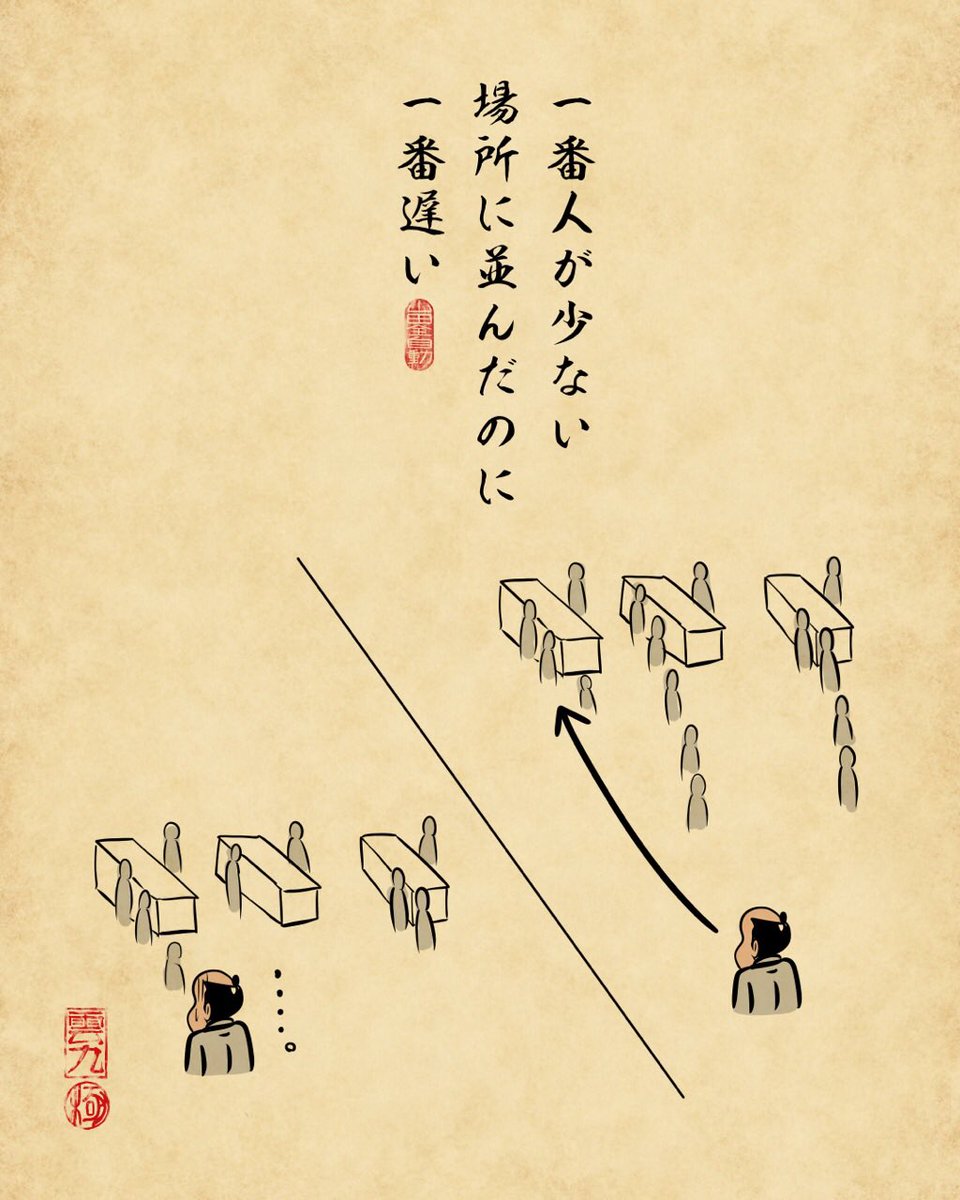 一番人が少ない
場所に並んだのに
一番遅い